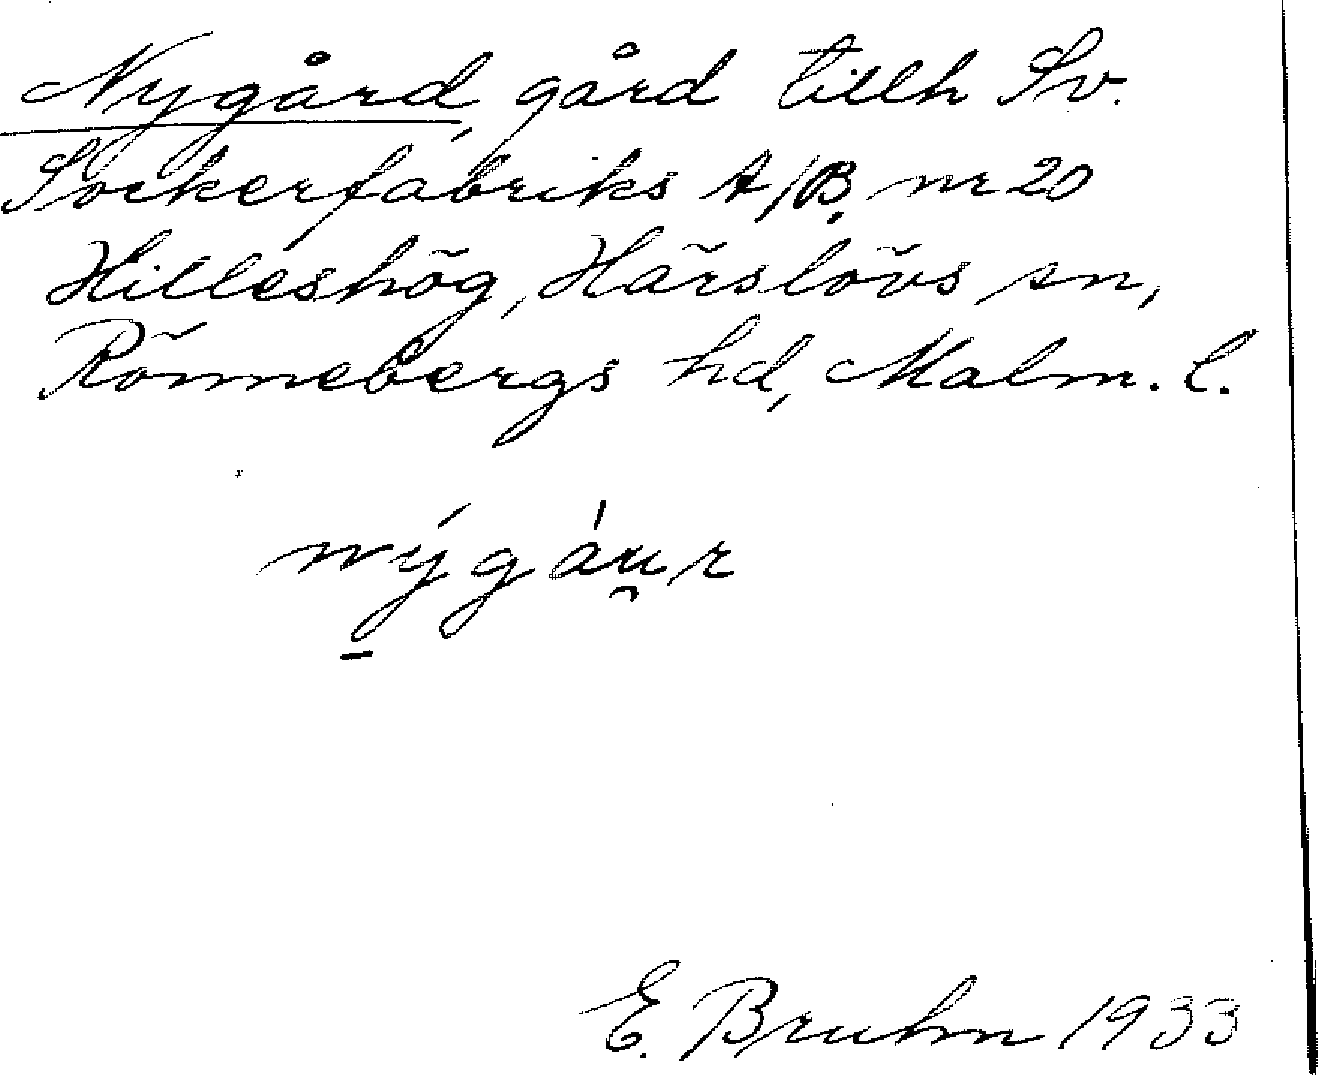 Nygård, gård tillh Sv.
Sockerfabriks A/B, nr 20
Hilleshög, Härslövs sn,
Rönnebergs hd, Malm. l.
ný̱gáu̯r
E. Bruhn 1933